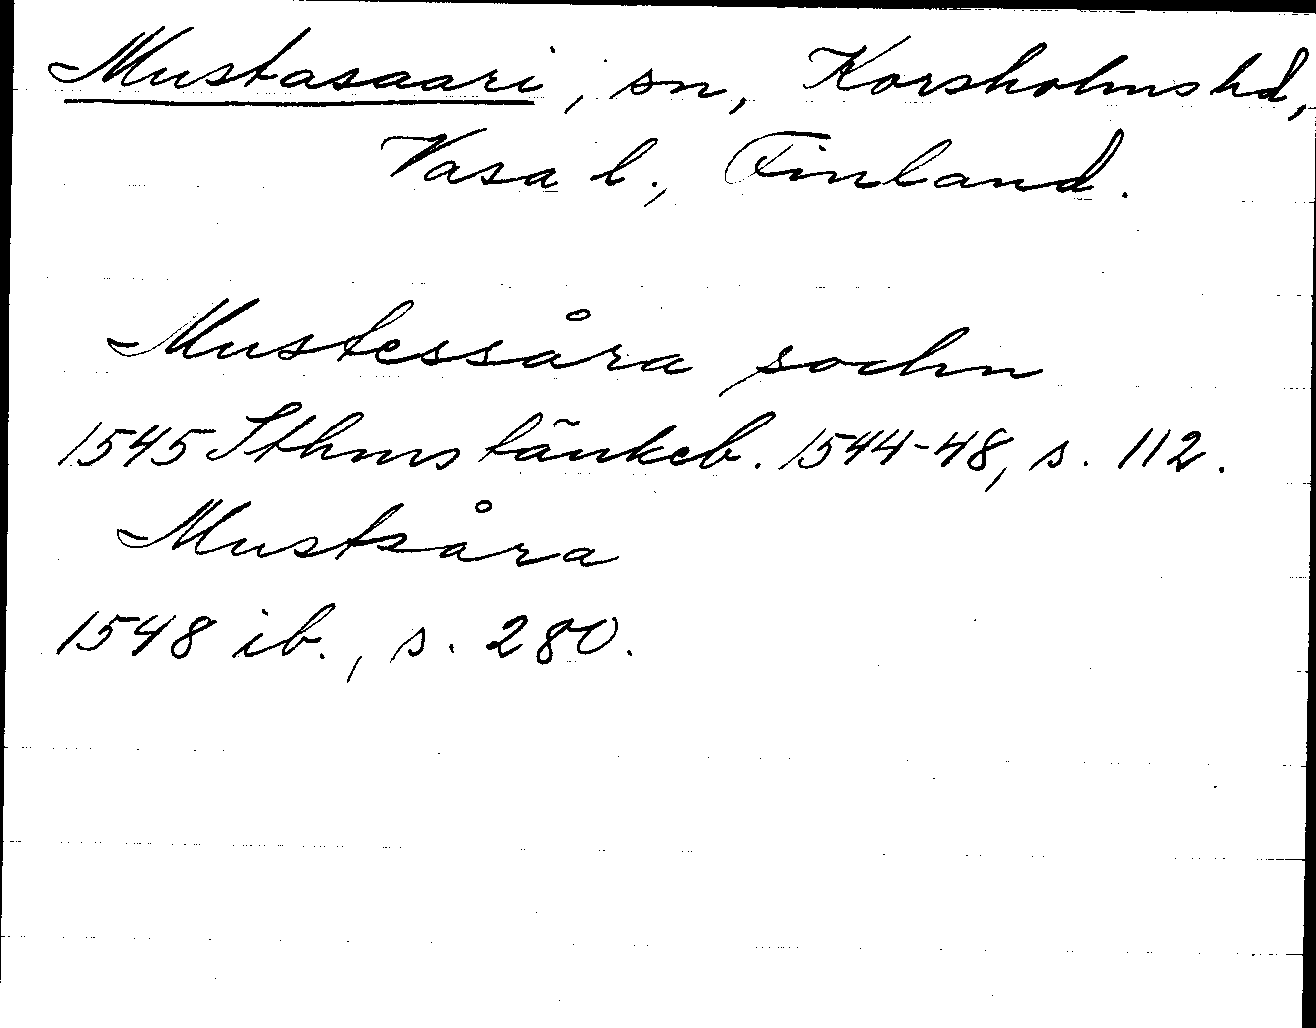 Mustasaari, sn, Korsholms hd,
Vasa l., Finland.
Mustessåra sochn
1545 Sthms tänkeb. 1544-48, s. 112.
Mustsåra
1548 ib., s. 280.